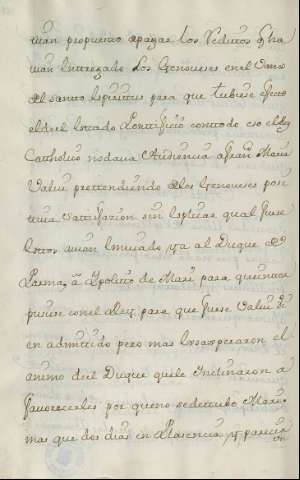 uian propuesto apagar los Creditos q̃ ha
uian Entregado Los Genoueses en el Vanco
del santo Spiritus para que tubiese efecto
el del estado Pontificio con todo eso el Rey
Catholico no daua Audiencia a fran.co Maria
Valui pretendiendo de los Genoueses pon
tual satisfazion sin esplicar qual fuese
Estos auian Imuiado ya al Duque de
Parma, a Ypolito de Mari para que inter
pusiese con el Rey, para que fuese Valui bi
en admitido pero mas Exsasperaron el
animo del Duque que le Inclinaron a
fauorecerles por que no se detubo Mari
mas que dos dias en Plasencia, y parecia